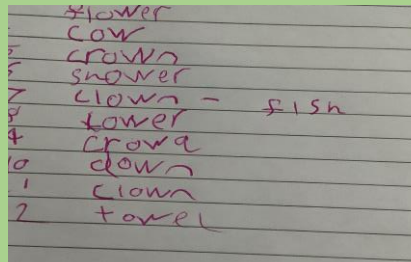 flower
cow
5 crown
6 shower
7 clown - fish
8 tower
9 crowd
10 down
1 clown
2 towel